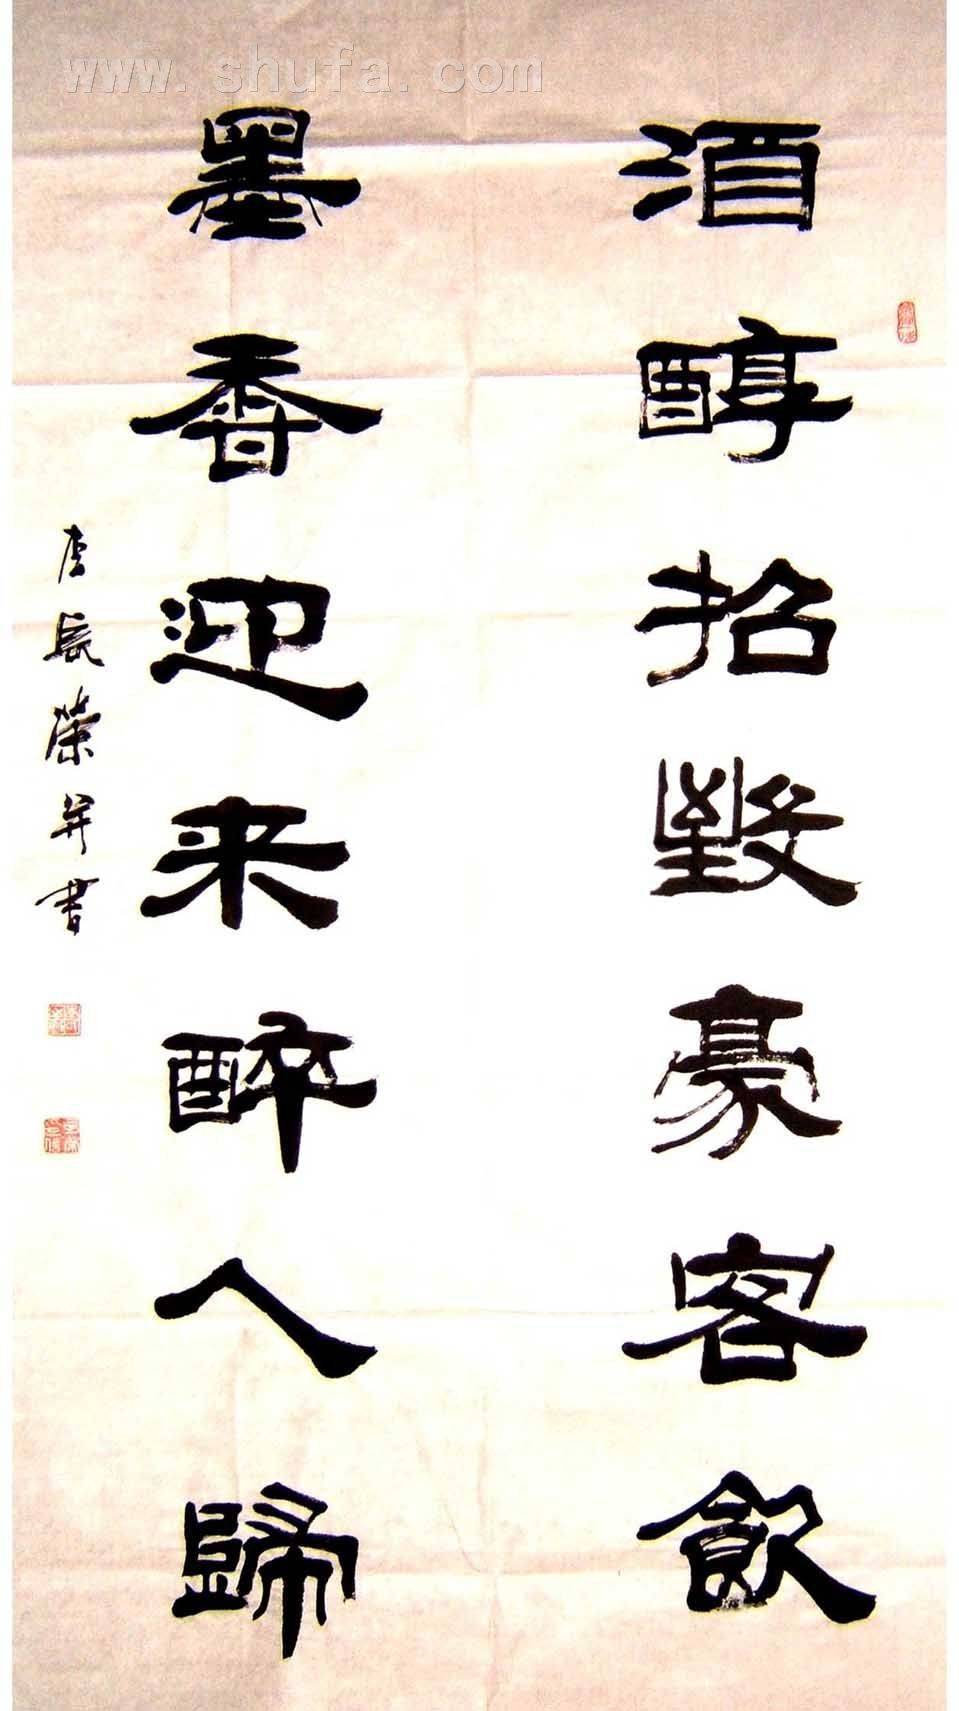 www.shufa.com
酒醇招豪客飲
墨香迎来醉人歸
長榮并書